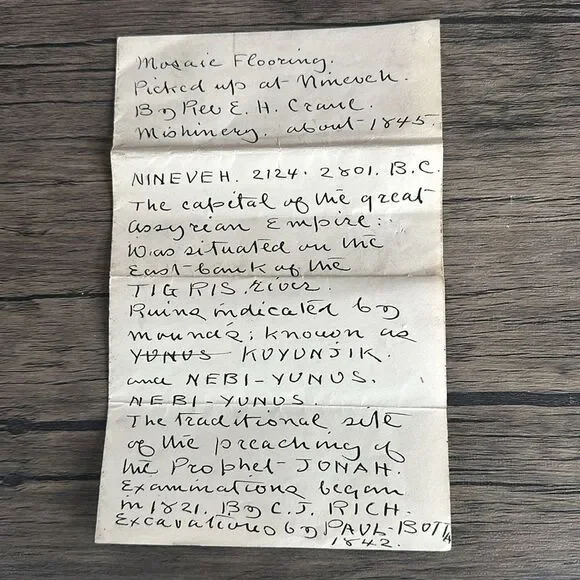 Mosaic Flooring.
Picked up at Nineveh.
By Rev E. H. Crane.
Mishinery. about 1845.
NINEVEH. 2124. 2801. B.C.
The capital of the great
Assyrian Empire:
Was situated on the
East bank of the
TIGRIS. river.
Ruins indicated by
mounds; known as
YUNUS KUYUNJIK.
and NEBI-YUNUS.
NEBI-YUNUS.
The traditional site
of the preaching of
the Prophet JONAH.
Examinations began
in 1821. By C.J. RICH.
Excavations by PAUL-BOTTA
1842.